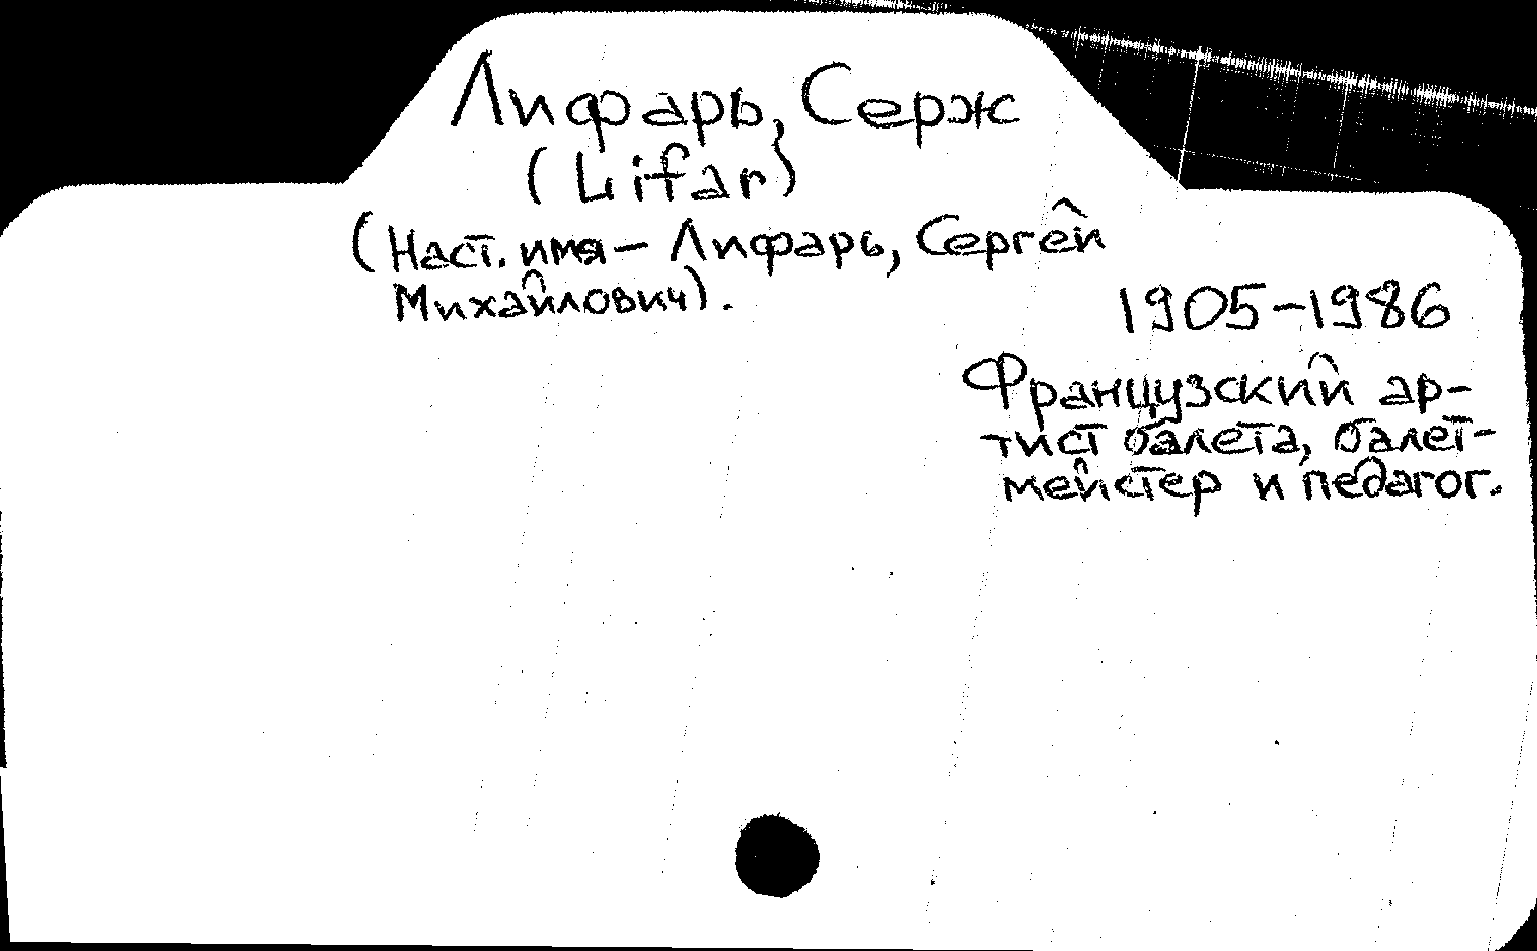 Лифарь, Серж
(Lifar)
(Наст. имя – Лифарь, Сергей
Михайлович).
1905–1986
Французский ар-
тист балета, балет-
мейстер и педагог.